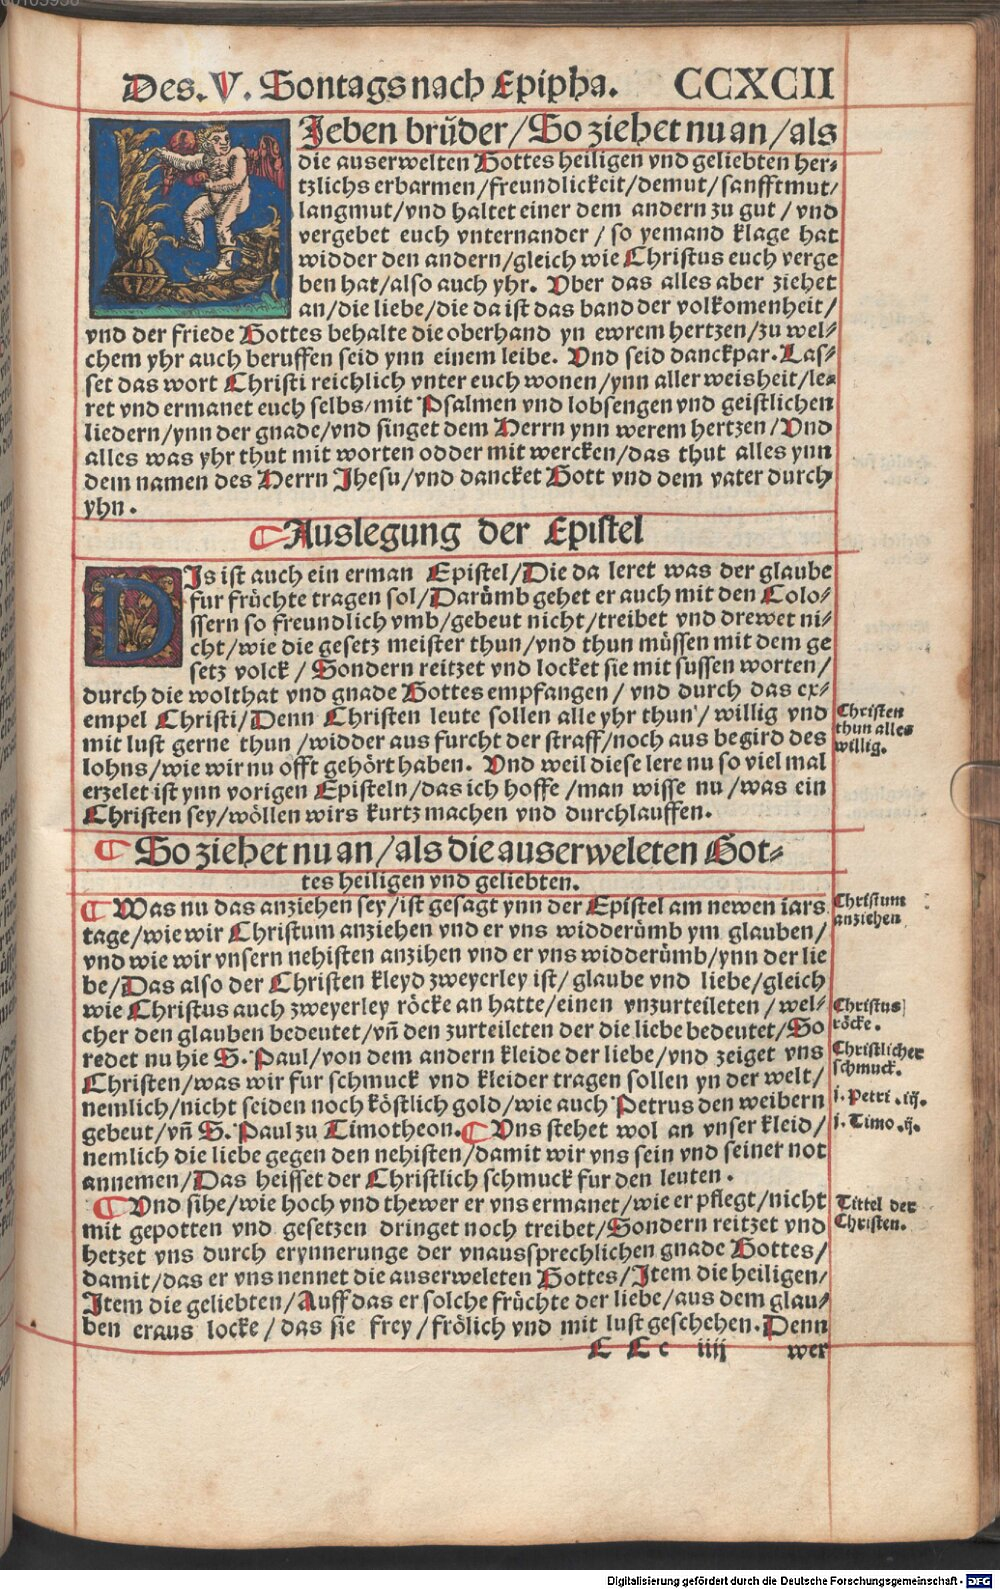 Des. V. Sontags nach Epipha. CCXCII
Jeben brůder/So ziehet nu an/als
die auserwelten Gottes heiligen vnd geliebten her⸗
tzlichs erbarmen/freundlickeit/demut/sanfftmut/
langmut/vnd haltet einer dem andern zu gut/vnd
vergebet euch vnternander/so yemand klage hat
widder den andern/gleich wie Christus euch verge
ben hat/also auch yhr. Vber das alles aber ziehet
an/die liebe/die da ist das band der volkomenheit/
vnd der friede Gottes behalte die oberhand yn ewrem hertzen/zu wel⸗
chem yhr auch beruffen seid ynn einem leibe. Vnd seid danckpar. Las⸗
set das wort Christi reichlich vnter euch wonen/ynn aller weisheit/le⸗
ret vnd ermanet euch selbs/mit Psalmen vnd lobsengen vnd geistlichen
liedern/ynn der gnade/vnd singet dem Herrn ynn werem hertzen/Vnd
alles was yhr thut mit worten odder mit wercken/das thut alles ynn
dem namen des Herrn Jhesu/vnd dancket Gott vnd dem vater durch
yhn.
¶ Auslegung der Epistel
DJs ist auch ein erman Epistel/Die da leret was der glaube
fur frůchte tragen sol/Darůmb gehet er auch mit den Colo⸗
ssern so freundlich vmb/gebeut nicht/treibet vnd drewet ni⸗
cht/wie die gesetz meister thun/vnd thun můssen mit dem ge
setz volck/Sondern reitzet vnd locket sie mit sussen worten/
durch die wolthat vnd gnade Gottes empfangen/vnd durch das ex⸗
empel Christi/Denn Christen leute sollen alle yhr thun/willig vnd
mit lust gerne thun/widder aus furcht der straff/noch aus begird des
lohns/wie wir nu offt gehört haben. Vnd weil diese lere nu so viel mal
erzelet ist ynn vorigen Episteln/das ich hoffe/man wisse nu/was ein
Christen sey/wöllen wirs kurtz machen vnd durchlauffen.
Christen
thun alles
willig.
¶ So ziehet nu an/als die auserweleten Got⸗
tes heiligen vnd geliebten.
¶ Was nu das anziehen sey/ist gesagt ynn der Epistel am newen iars
tage/wie wir Christum anziehen vnd er vns widderůmb ym glauben/
vnd wie wir vnsern nehisten anzihen vnd er vns widderůmb/ynn der lie
be/Das also der Christen kleyd zweyerley ist/glaube vnd liebe/gleich
wie Christus auch zweyerley röcke an hatte/einen vnzurteileten/wel⸗
cher den glauben bedeutet/vñ den zurteileten der die liebe bedeutet/So
redet nu hie S. Paul/von dem andern kleide der liebe/vnd zeiget vns
Christen/was wir fur schmuck vnd kleider tragen sollen yn der welt/
nemlich/nicht seiden noch köstlich gold/wie auch Petrus den weibern
gebeut/vñ S. Paul zu Timotheon. ¶ Vns stehet wol an vnser kleid/
nemlich die liebe gegen den nehisten/damit wir vns sein vnd seiner not
annemen/Das heisset der Christlich schmuck fur den leuten.
Christum
anziehen
Christus
röcke.
Christlicher
schmuck.
j. Petri .iij.
j. Timo .ij.
¶ Vnd sihe/wie hoch vnd thewer er vns ermanet/wie er pflegt/nicht
mit gepotten vnd gesetzen dringet noch treibet/Sondern reitzet vnd
hetzet vns durch erynnerunge der vnaussprechlichen gnade Gottes/
damit/das er vns nennet die auserweleten Gottes/Jtem die heiligen/
Jtem die geliebten/Auff das er solche frůchte der liebe/aus dem glau⸗
ben eraus locke/das sie frey/frölich vnd mit lust geschehen. Denn
Tittel der
Christen.
E E c iiij wer
Digitalisierung gefördert durch die Deutsche Forschungsgemeinschaft - DFG